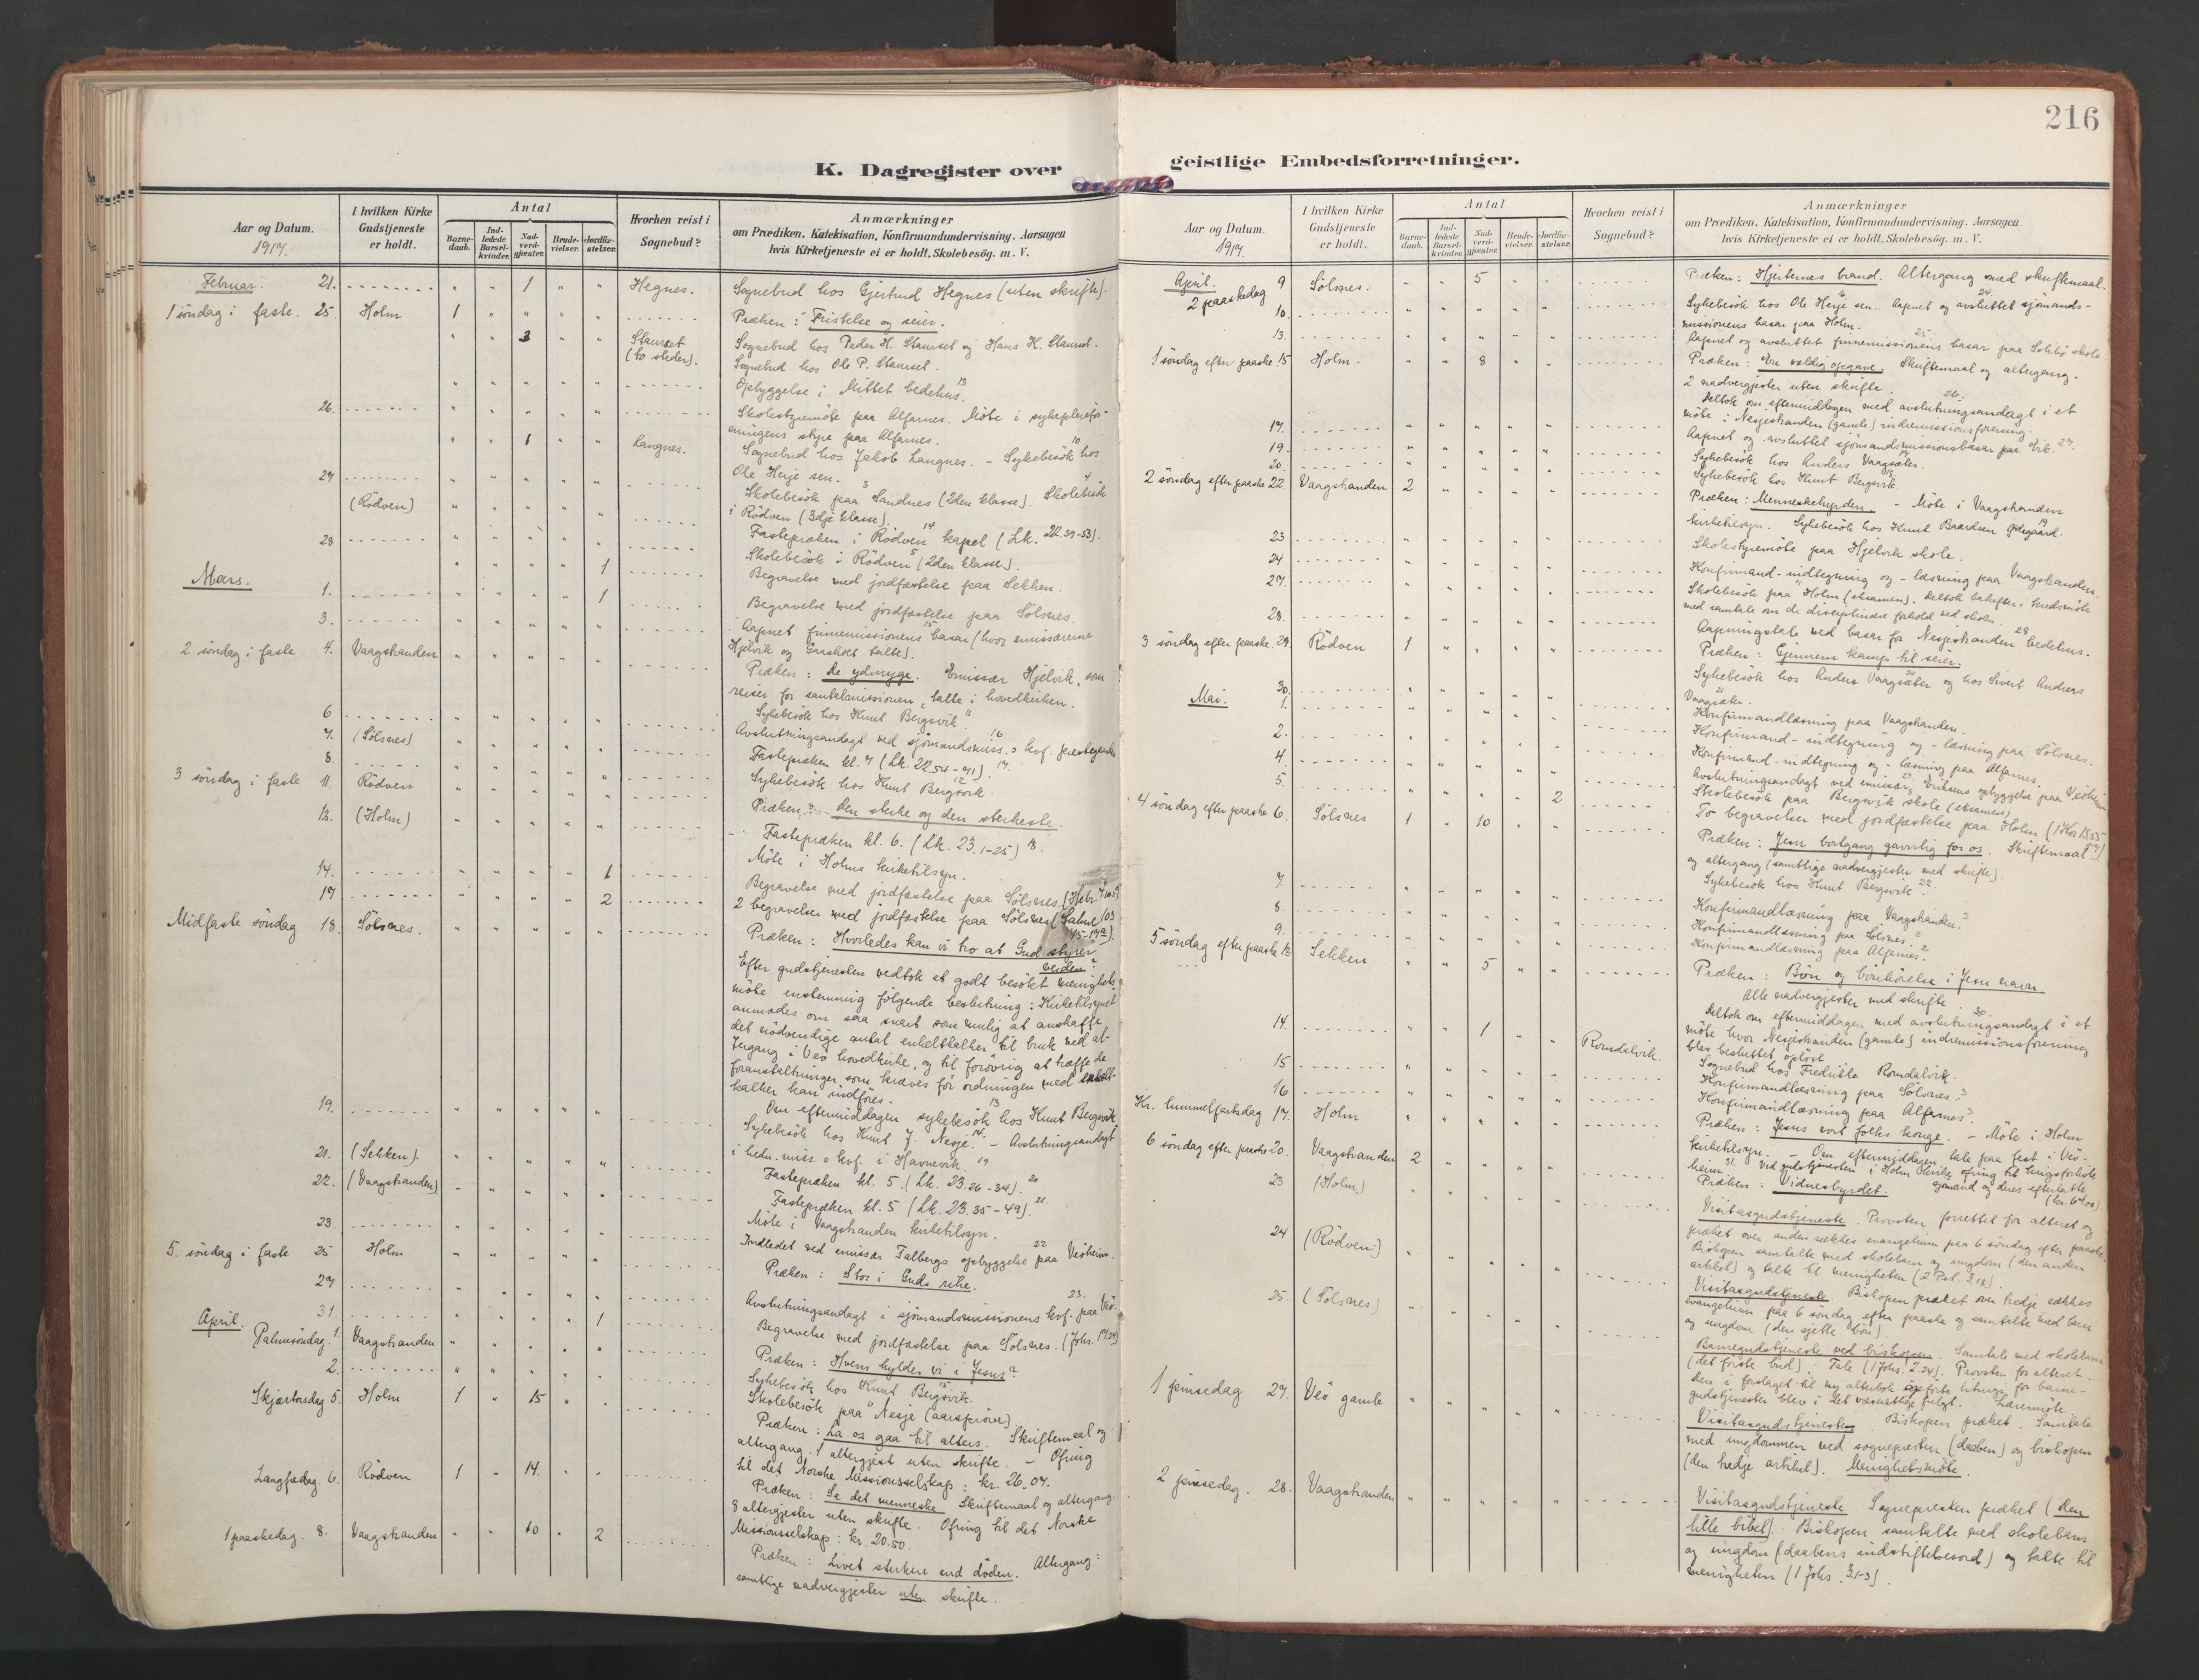 216
K. Dagregister over
geistlige Embedsforretninger.
Aar og Datum.
1917.
I hvilken Kirke
Gudstjeneste
er holdt.
Antal
Barne-
daab.
Ind-
ledede
Barsel-
kvinder.
Nad-
verd-
gjester.
Brude-
vielser.
Jordfæ-
stelser.
Hvorhen reist i
Sognebud?
Anmærkninger
om Prædiken. Katekisation, Konfirmandundervisning. Aarsagen
hvis Kirketjeneste ei er holdt, Skolebesøg. m. V.
Februar. 21. 1 Hegnes. Sognebud hos Gjertrud Hegnes (uten skrifte).
1 söndag i faste. 25. Holm 1 Præken: Fristelse og seier.
3 Staurset Sognebud hos Peder H. Staurset og Hans K. Staurset.
(to steder). Sognebud hos Ole P. Staurset.
Opbyggelse i Mittet bedehus. 13
26. Skolestyremöte paa Alfarnes. Möte i sykepleiefor-
eningens styre paa Alfarnes.
1 Langnes. Sognebud hos Jakob Langnes. – Sykebesök hos 10
Ole Herje sen.
27 Skolebesök paa Sandnes (2den klasse). Skolebesök
(Rödven) i Rödven (3dje klasse).
Fastepræken i Rödven kapel (Lk. 22.39-53). 14
28 Skolebesök i Rödven (2den klasse).
1 Begravelse med jordfæstelse paa Sekken.
Mars. 1. 1 Begravelse med jordfæstelse paa Sölsnes.
3. Aapnet finnemissionens basar (hvor emissærerne 15
Hjelvik og Gaasholt talte).
2 söndag i faste 4. Vaagstranden Præken: De ydmyge. Emissær Hjelvik, som
reiser for santalmissionen, talte i hovedkirken.
6 Sykebesök hos Knut Bergsvik. 11
7. (Sölsnes) Avslutningsandagt ved sjömandsmiss.s kvf. prestegaarden 16
8. Fastepræken kl. 7 (Lk. 22.54-71). 17
Sykebesök hos Knut Bergsvik. 12
3 söndag i faste 11. Rödven Præken: Den sterke og den sterkeste.
13. (Holm) Fastepræken kl. 6. (Lk. 23.1-25) 18.
Möte i Holms kirketilsyn.
14. 1 Begravelse med jordfæstelse paa Sölsnes.
17 2 2 begravelser med jordfæstelse paa Sölsnes (Salme 103
15-17a).
Midfaste söndag 18. Sölsnes. Præken: Hvorledes kan vi tro at Gud styrer
verden?
Efter gudstjenesten vedtok et godt besökt menighets-
möte enstemmig fölgende beslutning: Kirketilsynet
anmodes om saa snart som mulig at anskaffe
det nödvendige antal enkeltkalker til bruk ved al-
tergang i Veö hovedkirke, og til forövrig at træffe de
foranstaltninger, som kræves for ordningen med enkelt-
kalker kan indföres.
Om eftermiddagen sykebesök hos Knut Bergsvik. 13
19. Sykebesök hos Knut J. Nesje. – Avslutningsandagt 14.
i hedn.-miss.s kvf. i Havnevik. 19
21. (Sekken). Fastepræken kl. 5. (Lk. 23.26-34). 20
22. (Vaagstranden) Fastepræken kl. 5 (Lk. 23.35-49). 21.
Möte i Vaagstranden kirketilsyn.
23. Indledet ved emissær Talbergs opbyggelse paa Veöheim. 22
5. söndag i faste 25 Holm Præken: Stor i Guds rike.
27 Avslutningsandagt i sjömandsmissionens kvf. paa Veö. 23.
31. 1 Begravelse med jordfæstelse paa Sölsnes. (Johs. 17.24)
April. Palmesöndag. 1. Vaagstranden Præken: Hvem hylder vi i Jesus?
2. Sykebesök hos Knut Bergsvik. 15
Skolebesök paa Nesje (aarspröve).
Skjærtorsdag 5. Holm 1 15 Præken: La os gaa til alters. Skriftemaal og
altergang. 1 altergjest uten skrifte. – Ofring
til det Norske Missionsselskap: kr. 26.07.
Langfredag. 6. Rödven 1 14. Præken: Se det menneske. Skriftemaal og altergang.
8 altergjester uten skrifte. Ofring til det Norske
Missionsselskap: kr. 20.50.
1 paaskedag. 8. Vaagstranden 10 2 Præken: Livet sterkere end döden. Altergang:
samtlige nadvergjester uten skrifte.
Aar og Datum.
1917.
I hvilken Kirke
Gudstjeneste
er holdt.
Antal
Barne-
daab.
Ind-
ledede
Barsel-
kvinder.
Nad-
verd-
gjester.
Brude-
vielser.
Jordfæ-
stelser.
Hvorhen reist i
Sognebud?
Anmærkninger
om Prædiken. Katekisation, Konfirmandundervisning. Aarsagen
hvis Kirketjeneste ei er holdt, Skolebesög. m. V.
April. 9 Sölsnes. 5 Præken: Hjerternes brand. Altergang med skriftemaal.
2 paaskedag
10. Sykebesök hos Ole Herje sen. Aapnet og avsluttet sjömands- 24
missionens basar paa Holm.
13. Aapnet og avsluttet finnemissionens basar paa Solibö skole 25
1 söndag efter paaske. 15 Holm. 8 Præken: En veldig opgave. Skriftemaal og altergang.
2 nadvergjester uten skrifte.
Deltok om eftermiddagen med avslutningsandagt i et 26.
möte i Nesjestranden (gamle) indremissionsforening.
17. Aapnet og avsluttet sjömandsmissionsbasar paa Vik. 27.
19. Sykebesök hos Anders Vaagsæter.
20. Sykebesök hos Knut Bergsvik.
2 söndag efter paaske 22. Vaagstranden 2 Præken: Menneskehyrden. – Möte i Vaagstranden
kirketilsyn. Sykebesök hos Knut Baardsen Ödegaard. 19
23 Skolestyremöte paa Hjelvik skole.
24 Konfirmand-indtegning og -læsning paa Vaagstranden.
27. Skolebesök paa Holm (eksamen). Deltok bakefter i kredsmöte
med samtale om de disciplinære forhold ved skolen.
28. Aapningstale ved basar for Nesjestranden bedehus. 28
3 söndag efter paaske. 29. Rödven 1 Præken: Gjennem kamp til seier.
30. Sykebesök hos Anders Vaagsæter og hos Sivert Andreas 20
Vaagsæter. 21
Mai. 1. Konfirmandlæsning paa Vaagstranden.
2. Konfirmand-indtegning og -læsning paa Sölsnes.
4. Konfirmand-indtegning og -læsning paa Alfarnes.
Avslutningsandagt ved emissær Eriksens opbyggelse paa Veöheim
5. Skolebesök paa Bergsvik skole (eksamen)
2 To begravelser med jordfæstelse paa Holm (1 Kor. 15.55
4 söndag efter paaske 6. Sölsnes 1 10 Præken: Jesu bortgang gavnlig for os. Skriftemaal
og altergang (samtlige nadvergjester med skrifte).
Sykebesök hos Knut Bergsvik. 22
7. Konfirmandlæsning paa Vaagstranden. 2
8. Konfirmandlæsning paa Sölsnes. 2
9. Konfirmandlæsning paa Alfarnes. 2
5 söndag efter paaske 13 Sekken 5 Præken: Bön og bönhörelse i Jesu navn
Alle nadvergjester med skrifte.
Deltok om eftermiddagen med avslutningsandagt i et 30
möte hvor Nesjestranden (gamle) indremissionsforening
blev besluttet oplöst.
14. 1 Romdalsvik. Sognebud hos Fredrikke Romdalsvik.
15 Konfirmandlæsning paa Sölsnes. 3
16 Konfirmandlæsning paa Alfarnes. 3
Kr. himmelfartsdag 17. Holm Præken: Jesus vort folks konge. – Möte i Holm
kirketilsyn. – Om eftermiddagen tale paa fest i Veö-
heim. 31. Ved gudstjenesten i Holm kirke ofring til krigsforliste
sjömænd og deres efterlatte
6 söndag efter paaske 20. Vaagstranden 2 Præken: Vidnesbyrdet.
23 (Holm) Visitasgudstjeneste. Provsten forrettet for alteret og
præket over anden rækkes evangelium paa 6 söndag efter paaske.
Biskopen samtalte med skolebarn og ungdom (den anden
artikel) og talte til menigheten (2 Pet. 3.18).
24 (Rödven:) Visitasgudstjeneste. Biskopen præket over tredje rækkes
evangelium paa 6 söndag efter paaske og samtalte med barn
og ungdom (den sjette bön).
25. (Sölsnes) Barnegudstjeneste ved biskopen. Samtale med skolebarn
(det förste bud). Tale (1 Johs. 2.24). Provsten for alteret.
Den i forslaget til ny alterbok opförte liturgi for barne-
gudstjenester blev i det væsentlige fulgt. Læremöte.
1 pinsedag 27. Veö gamle Visitasgudstjeneste. Biskopen præket. Samtale
med ungdommen ved sognepresten (daaben) og biskopen
(den tredje artikel). Menighetsmöte.
2 pinsedag. 28. Vaagstranden Visitasgudstjeneste. Sognepresten præket (den
lille bibel). Biskopen samtalte med skolebarn
og ungdom (daabens indstiftelsesord) og talte til
menigheten (1 Johs. 3.1-3).